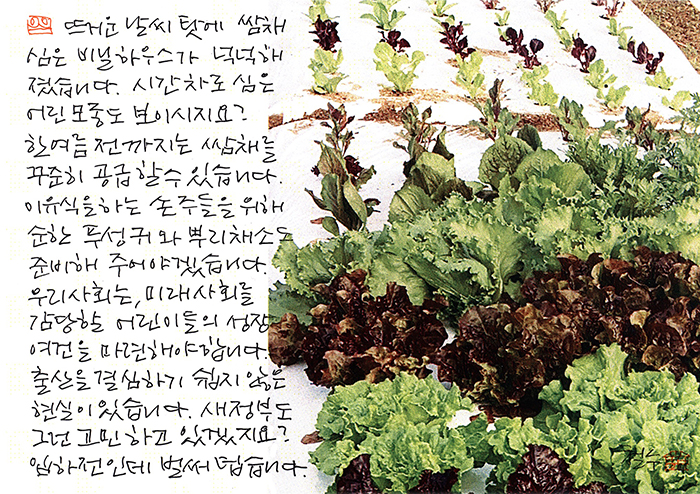 뜨거운 날씨 탓에 쌈채
심은 비닐하우스가 넉넉해
졌습니다. 시간차로 심은
어린모종도 보이시지요?
한여름 전까지는 쌈채를
꾸준히 공급할수있습니다.
이유식을하는 손주들을 위해
순한 푸성귀와 뿌리채소도
준비해 주어야겠습니다.
우리사회는, 미래사회를
감당할 어린이들의 성장
여건을 마련해야합니다.
출산을결심하기 쉽지않은
현실이있습니다. 새정부도
그런 고민하고 있겠지요?
입하전인데 벌써 덥습니다.
철수